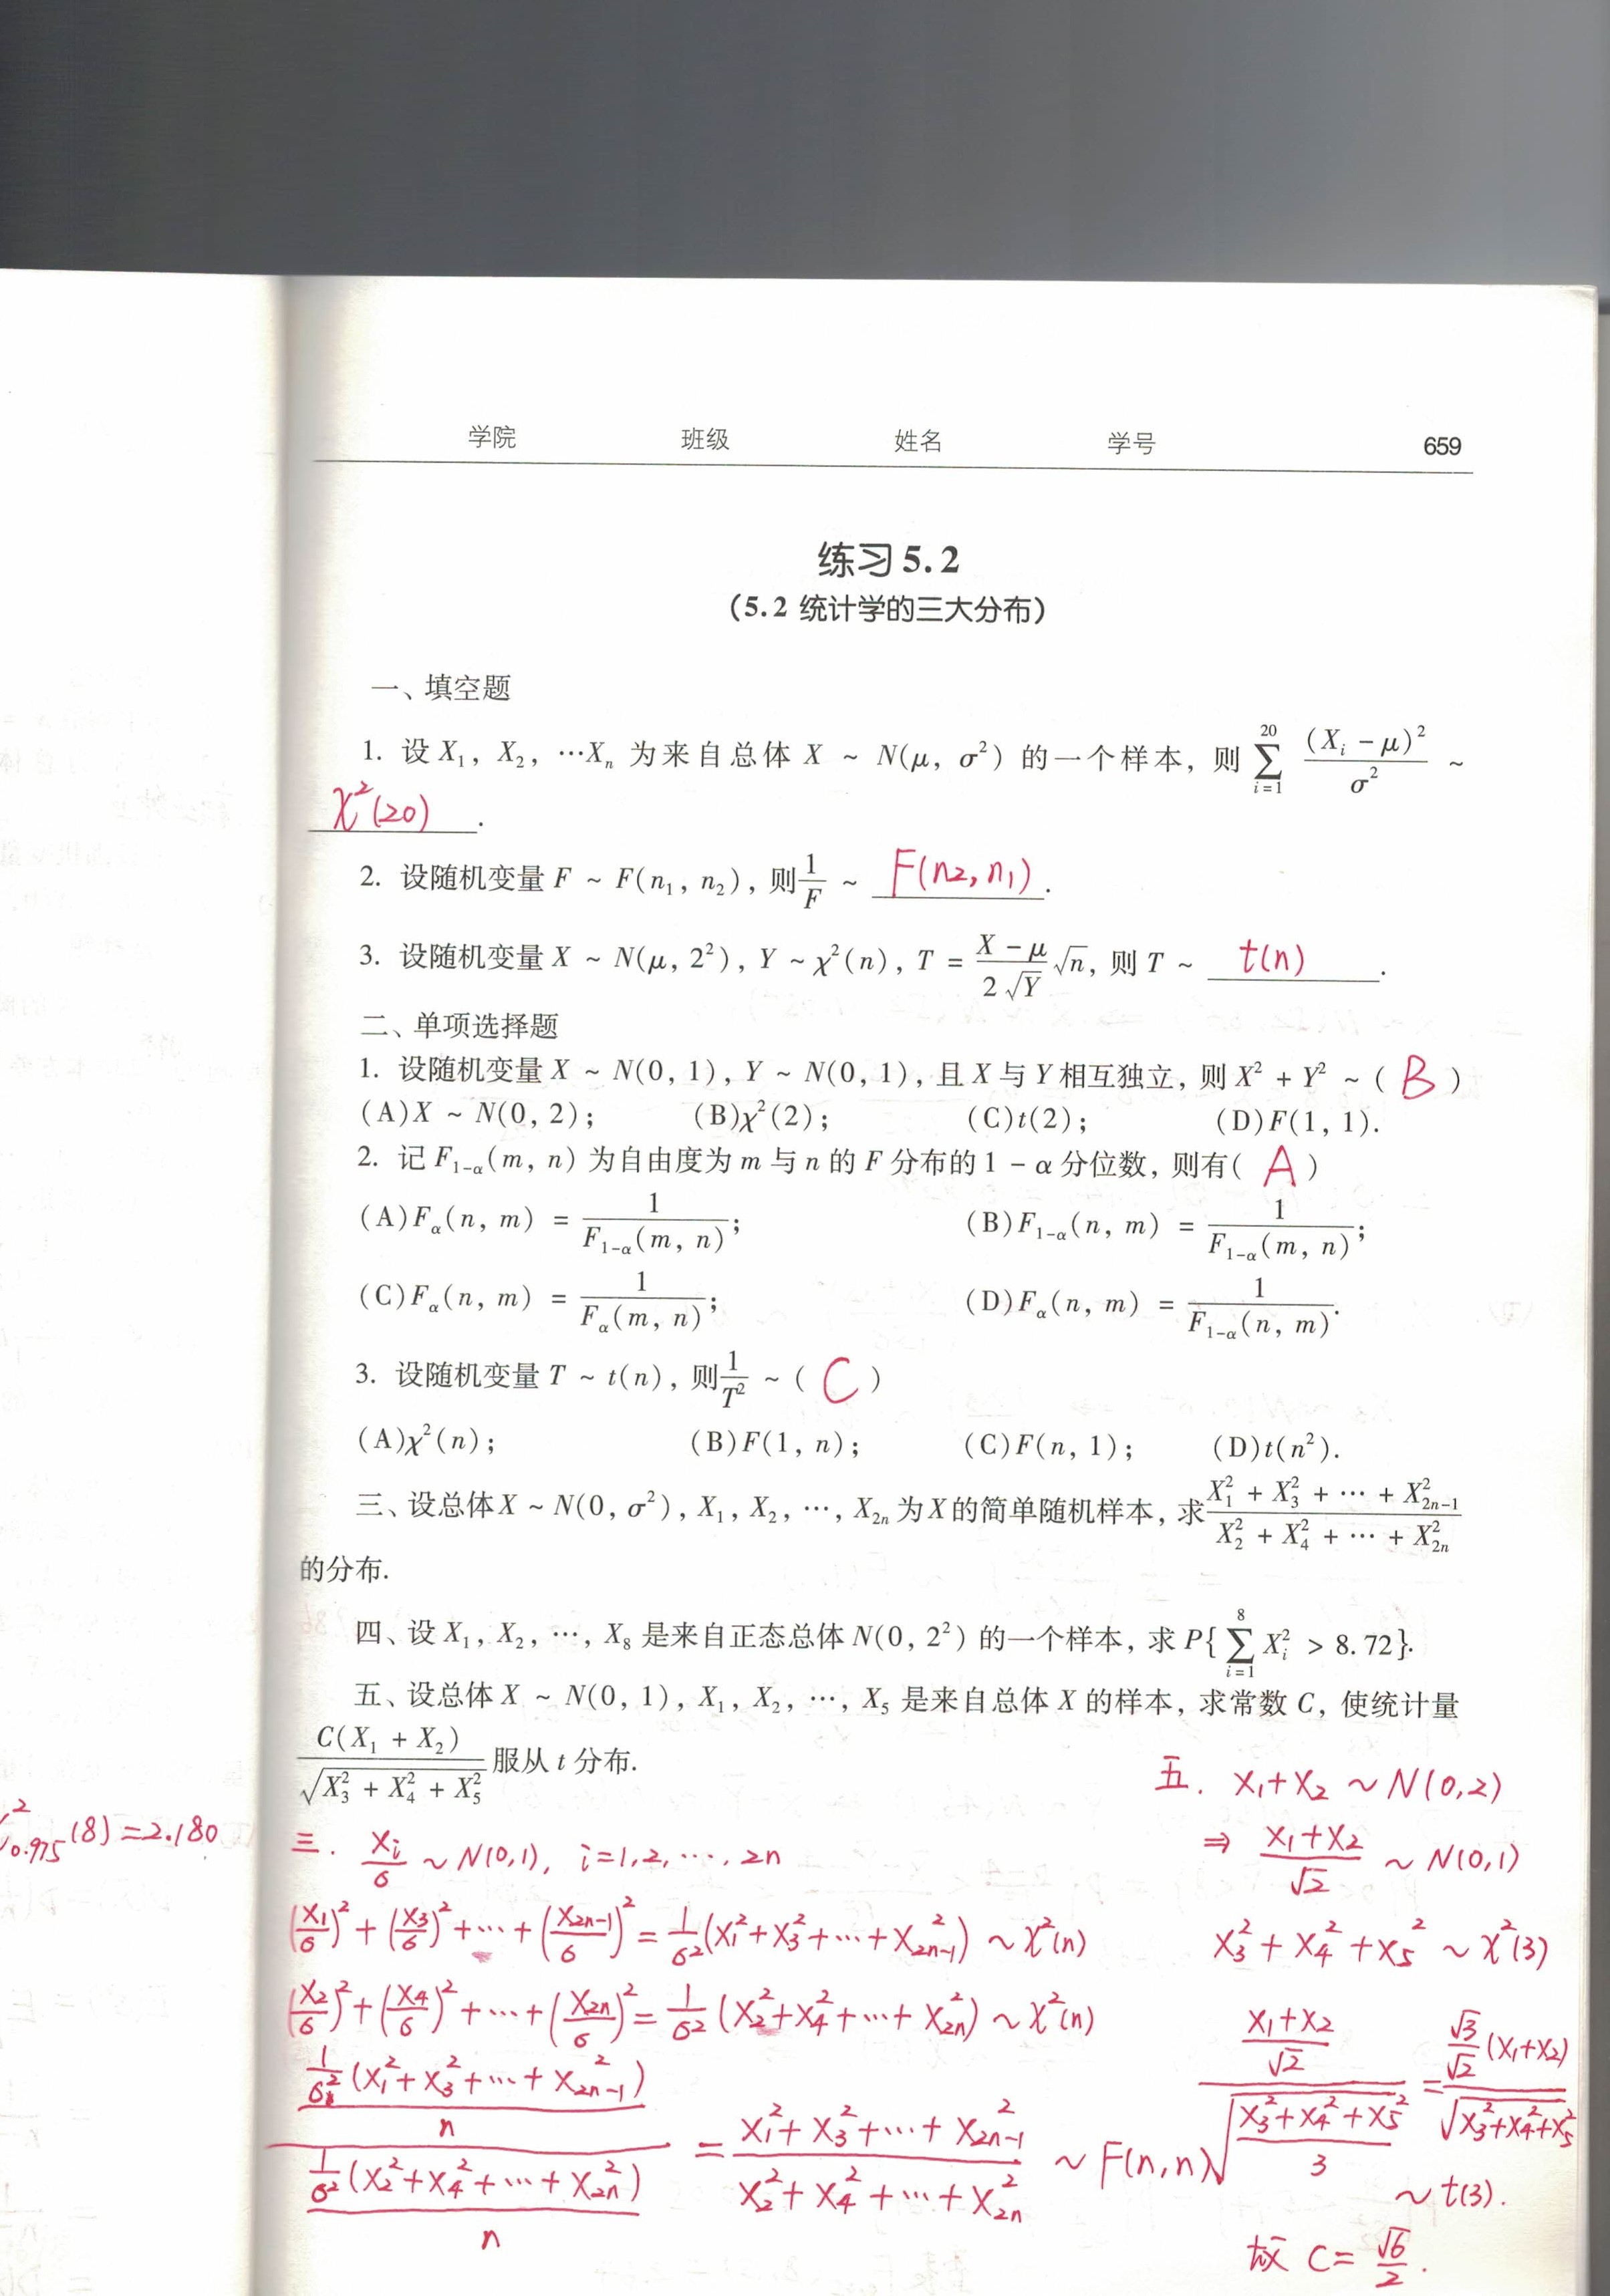 学院 班级 姓名 学号 659
练习5.2
(5.2 统计学的三大分布)
一、填空题
1. 设 X₁, X₂, …Xₙ 为来自总体 X ~ N(μ, σ²) 的一个样本, 则 ∑_{i=1}^{20} (X_i − μ)²/σ² ~
χ²(20).
2. 设随机变量 F ~ F(n₁, n₂), 则 1/F ~ F(n₂, n₁).
3. 设随机变量 X ~ N(μ, 2²), Y ~ χ²(n), T = (X − μ)/(2√Y) √n, 则 T ~ t(n).
二、单项选择题
1. 设随机变量 X ~ N(0, 1), Y ~ N(0, 1), 且 X 与 Y 相互独立, 则 X² + Y² ~ ( B )
(A)X ~ N(0, 2); (B)χ²(2); (C)t(2); (D)F(1, 1).
2. 记 F_{1−α}(m, n) 为自由度为 m 与 n 的 F 分布的 1 − α 分位数, 则有( A )
(A)F_α(n, m) = 1/F_{1−α}(m, n); (B)F_{1−α}(n, m) = 1/F_{1−α}(m, n);
(C)F_α(n, m) = 1/F_α(m, n); (D)F_α(n, m) = 1/F_{1−α}(n, m).
3. 设随机变量 T ~ t(n), 则 1/T² ~ ( C )
(A)χ²(n); (B)F(1, n); (C)F(n, 1); (D)t(n²).
三、设总体 X ~ N(0, σ²), X₁, X₂, …, X_{2n} 为 X 的简单随机样本, 求 (X₁² + X₃² + … + X_{2n−1}²)/(X₂² + X₄² + … + X_{2n}²)
的分布.
四、设 X₁, X₂, …, X₈ 是来自正态总体 N(0, 2²) 的一个样本, 求 P{∑_{i=1}^{8} X_i² > 8.72}.
五、设总体 X ~ N(0, 1), X₁, X₂, …, X₅ 是来自总体 X 的样本, 求常数 C, 使统计量
C(X₁ + X₂)/√(X₃² + X₄² + X₅²) 服从 t 分布.
²_{0.975}(8)=2.180
三. X_i/σ ~ N(0,1), i=1,2,…,2n
(X₁/σ)² + (X₃/σ)² + … + (X_{2n−1}/σ)² = 1/σ² (X₁²+X₃²+…+X_{2n−1}²) ~ χ²(n)
(X₂/σ)² + (X₄/σ)² + … + (X_{2n}/σ)² = 1/σ² (X₂²+X₄²+…+X_{2n}²) ~ χ²(n)
[1/σ² (X₁²+X₃²+…+X_{2n−1}²)/n] / [1/σ² (X₂²+X₄²+…+X_{2n}²)/n] = (X₁²+X₃²+…+X_{2n−1}²)/(X₂²+X₄²+…+X_{2n}²) ~ F(n,n)
五. X₁+X₂ ~ N(0,2)
⇒ (X₁+X₂)/√2 ~ N(0,1)
X₃²+X₄²+X₅² ~ χ²(3)
[(X₁+X₂)/√2] / √[(X₃²+X₄²+X₅²)/3] = [√3/√2 (X₁+X₂)] / √(X₃²+X₄²+X₅²)
~ t(3).
故 C= √6/2.